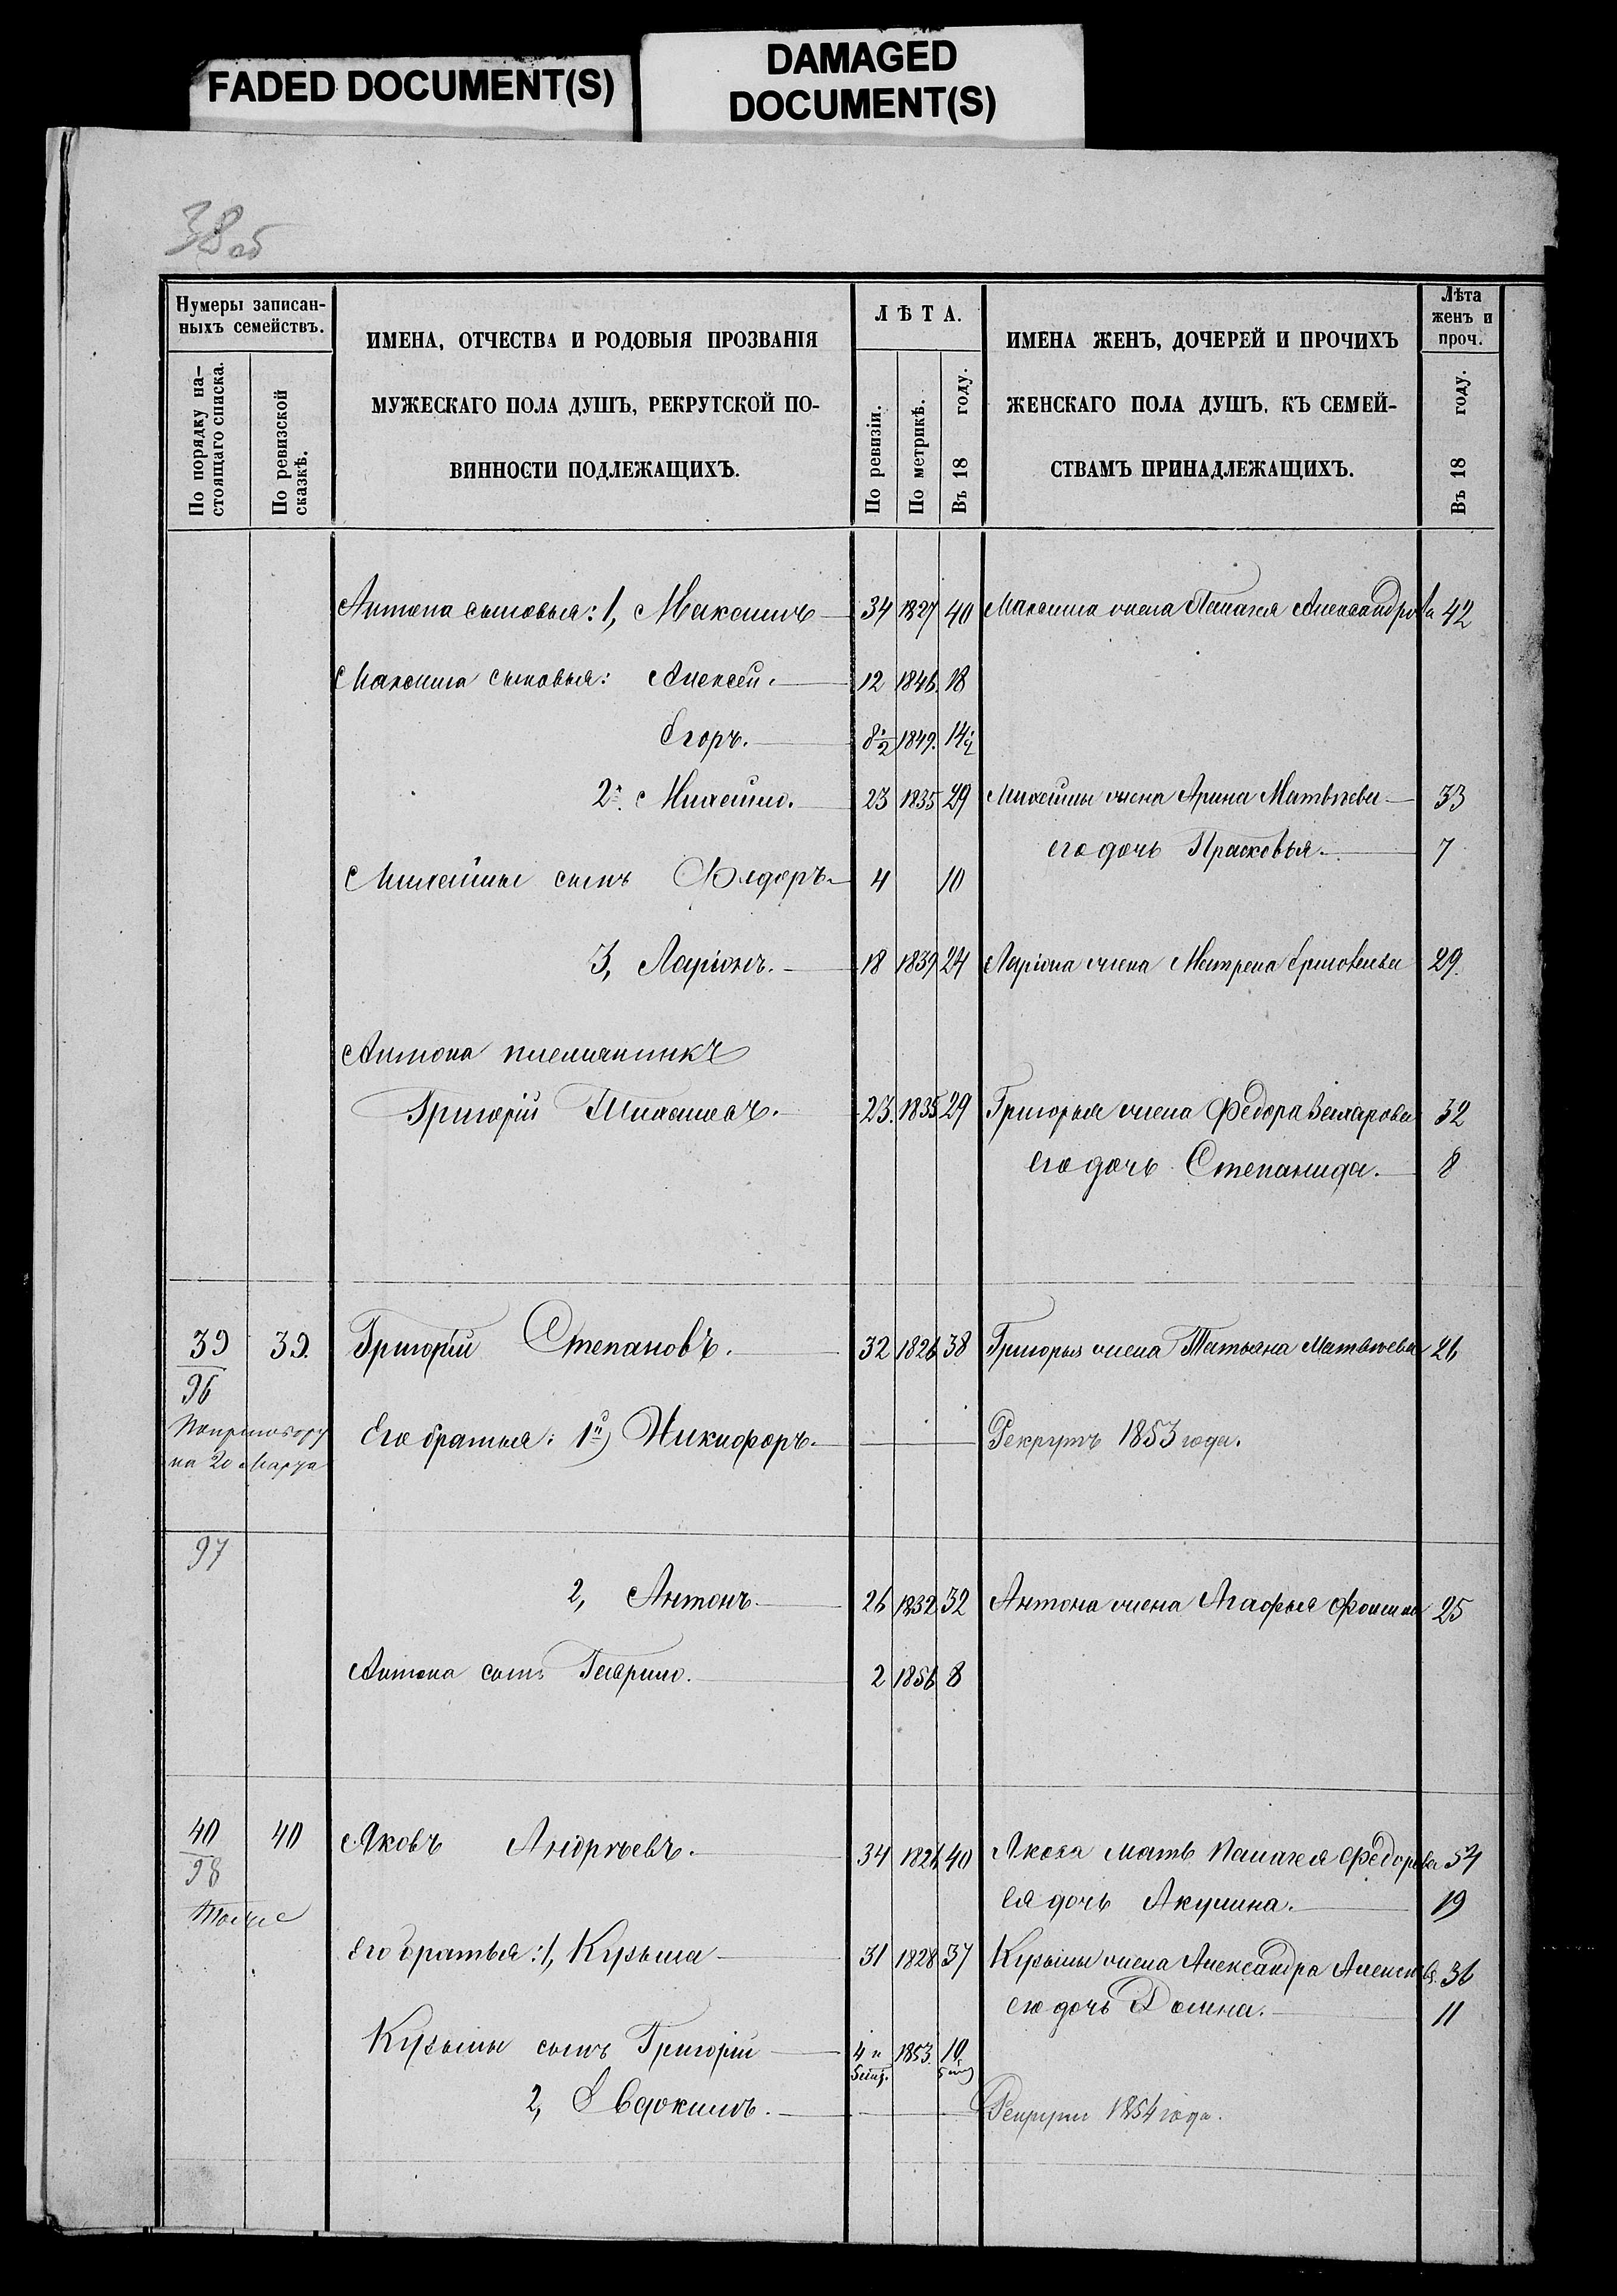 FADED DOCUMENT(S)
DAMAGED
DOCUMENT(S)
38 об
Нумеры записан-
ныхъ семействъ.
По порядку на-
стоящаго списка.
По ревизской
сказкѣ.
ИМЕНА, ОТЧЕСТВА И РОДОВЫЯ ПРОЗВАНІЯ
МУЖЕСКАГО ПОЛА ДУШЪ, РЕКРУТСКОЙ ПО-
ВИННОСТИ ПОДЛЕЖАЩИХЪ.
ЛѢТА.
По ревизіи.
По метрикѣ.
Въ 18 году.
ИМЕНА ЖЕНЪ, ДОЧЕРЕЙ И ПРОЧИХЪ
ЖЕНСКАГО ПОЛА ДУШЪ, КЪ СЕМЕЙ-
СТВАМЪ ПРИНАДЛЕЖАЩИХЪ.
Лѣта
женъ и
проч.
Въ 18 году.
Антона сыновья: 1, Максимъ 34 1827 40 Максима жена Пелагея Александрова 42
Максима сыновья: Алексей. 12 1846. 18
Егоръ. 8 1/2 1849. 14
2. Михайло. 23 1835 29 Михайлы жена Арина Матвѣева 33
его дочь Прасковья. 7
Михайлы сынъ Ѳедоръ 4 10
3, Ларіонъ. 18 1839 24 Ларіона жена Матрена 29.
Антона племянникъ
Григорій 23. 1835 29 Григорья жена Федора Захарова 32
его дочь Степанида. 8
39 39. Григорій Степановъ. 32 1826 38 Григорья жена Татьяна Матвѣева 26
96
По приговору
на 20 Марта
Его братья: 1й) Никифоръ. Рекрутъ 1853 года.
97
2, Антонъ 26 1832 32 Антона жена Агафья Фомина 25
Антона сынъ Гаврило. 2 1856 8
40 40 Яковъ Андрѣевъ. 34 1824 40 Якова мать Палагея Федорова 54
98
тоже
ея дочь Акулина. 19
Его братья: 1, Кузьма 31 1828 37 Кузьмы жена Александра 36
его дочь Домна. 11
Кузьмы сынъ Григорій 4 и 1853. 10
2, Евдокимъ. Рекрутъ 1854 года.